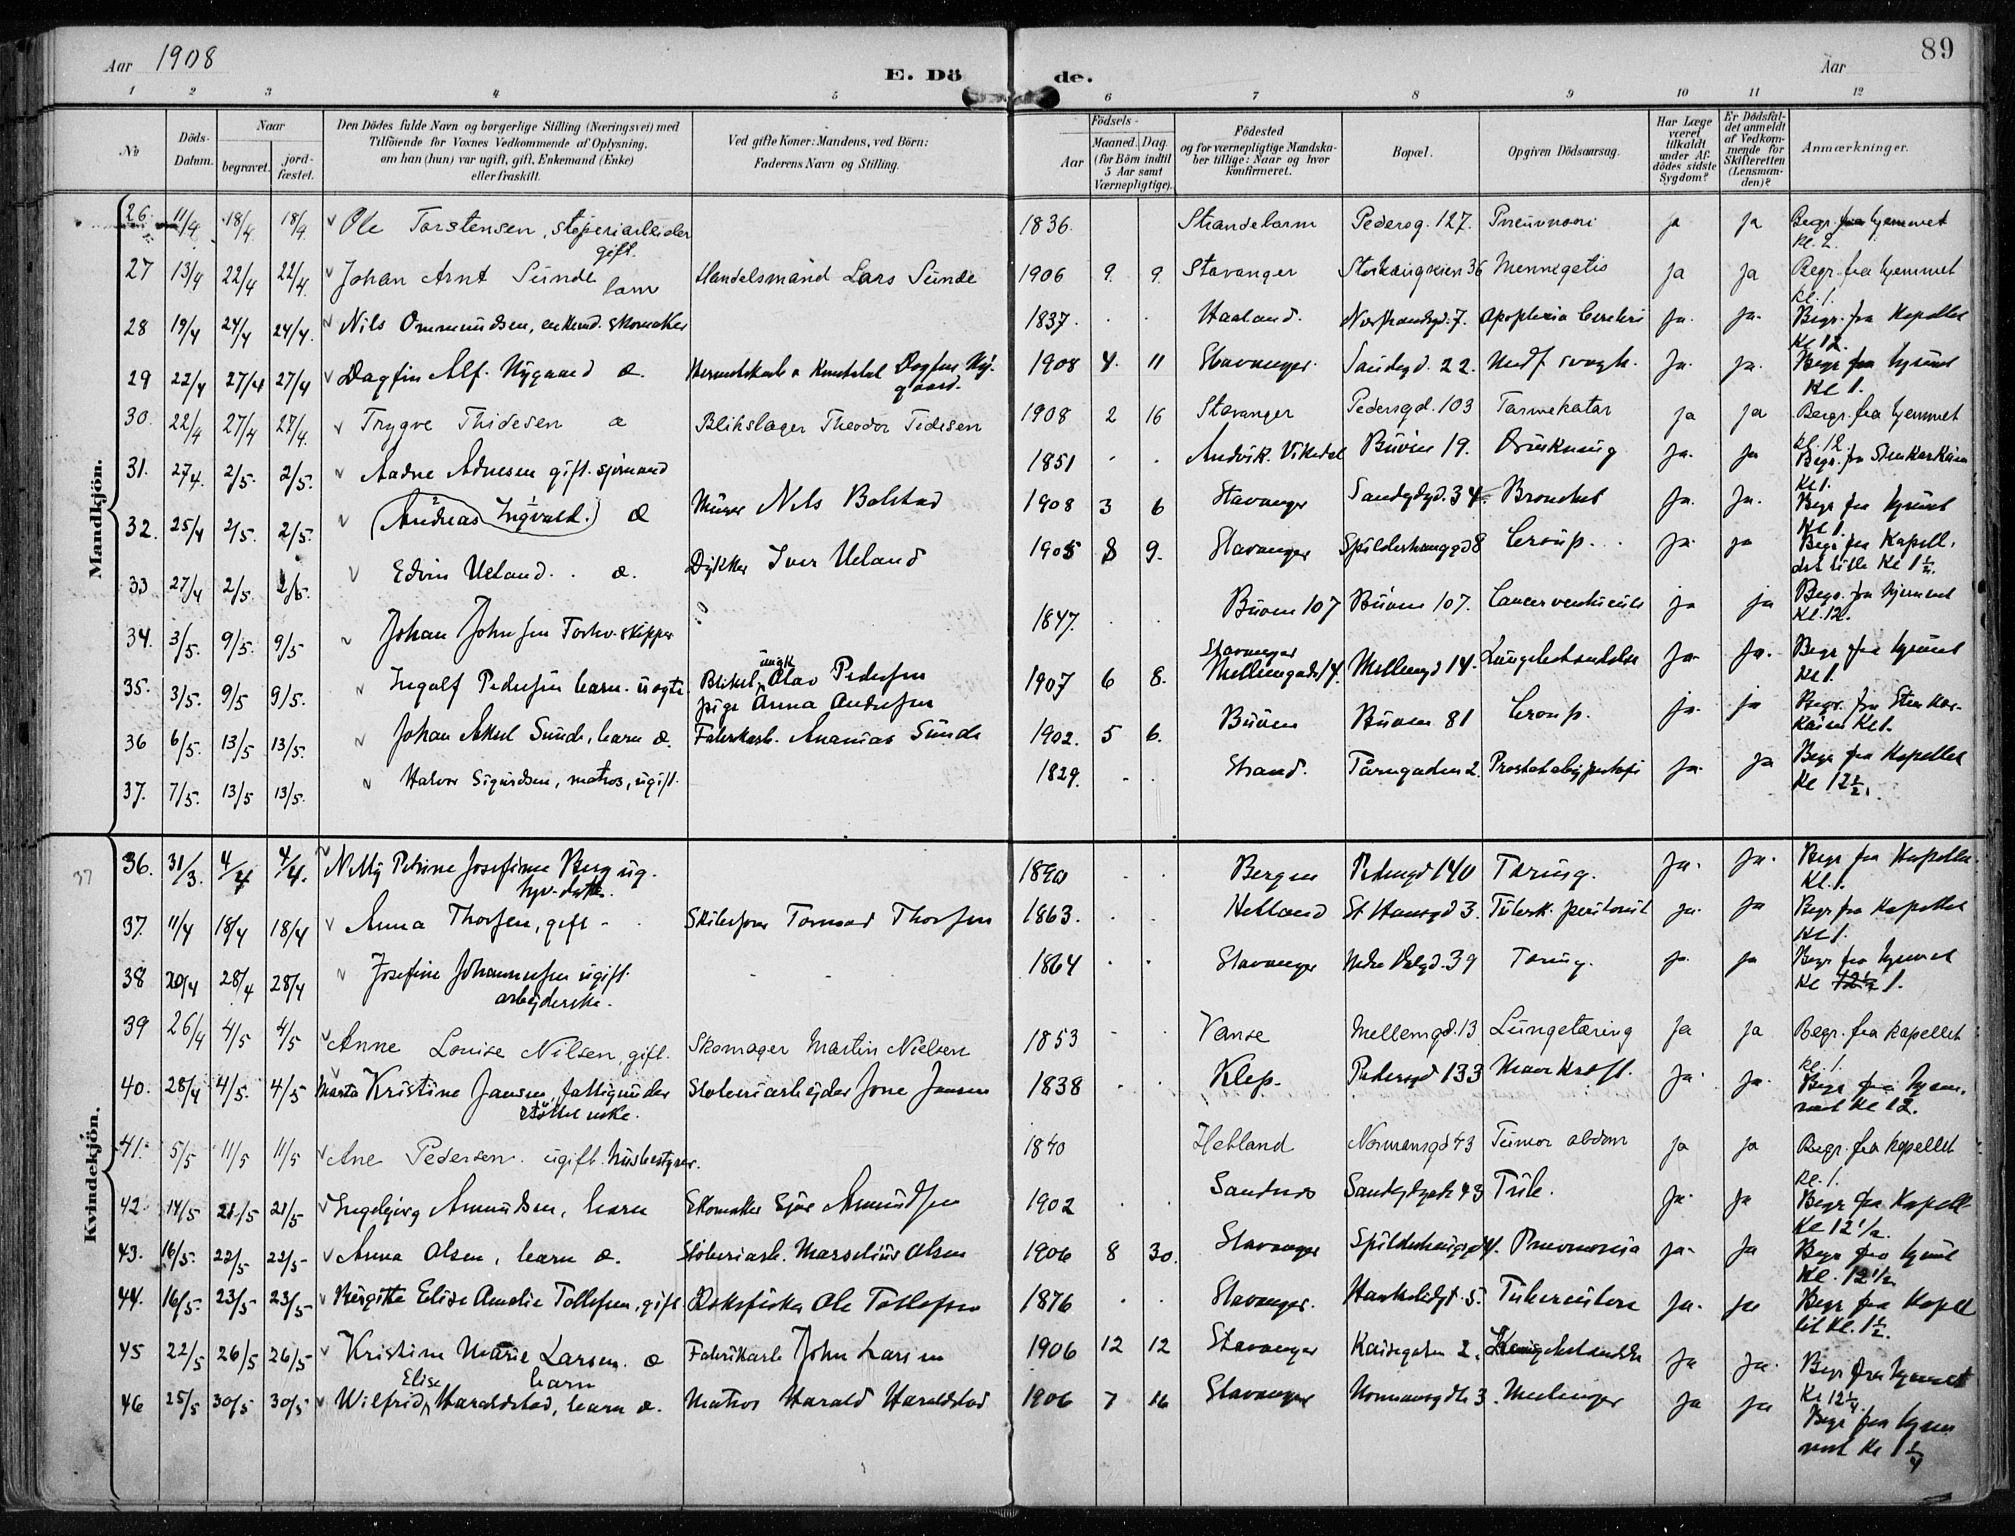 Aar 1908
E. Dö de.
Aar
89
1 2 3 4 5 6 7 8 9 10 11 12
No
Döds-Datum.
Naar
begravet.
jord-fæstet.
Den Dödes fulde Navn og borgerlige Stilling (Næringsvei) med
Tilföiende for Voxnes Vedkommende af Oplysning,
om han (hun) var ugift, gift, Enkemand (Enke)
eller fraskilt.
Ved gifte Koner: Mandens, ved Börn:
Faderens Navn og Stilling.
Födsels-
Aar
Maaned. Dag.
(for Börn indtil
5 Aar samt
Værnepligtige).
Födested
og for værnepligtige Mandska-
ber tillige: Naar og hvor
konfirmeret.
Bopæl.
Opgiven Dödsaarsag.
Har Læge
været
tilkaldt
under Af-
dödes sidste
Sygdom?
Er Dödsfal-
det anmeldt
af Vedkom-
mende for
Skifteretten
(Lensman-
den)?
Anmærkninger.
Mandkjön.
26. 11/4 18/4 18/4 Ole Torstensen, støperiarbeider gift. 1836. Strandebarm Pedersg. 127. Pneumoni ja ja Begr. fra hjemmet kl. 2.
27 13/4 22/4 22/4. Johan Arnt Sunde barn Handelsmand Lars Sunde 1906 9. 9. Stavanger 36 ja ja Begr. fra hjemmet kl. 1.
28 19/4 24/4 24/4. Nils Ommundsen, enkemd. skomaker 1837. Haaland. 7. Apoplexia Cerebri ja. ja. Begr. fra Kapellet Kl 12.
29 22/4 27/4 27/4 Dagfin Alf. Nygaard æ. Dagfin Ny-gaard. 1908 4. 11 Stavanger. 22. Medf. svagh. ja. ja. Begr fra hjemmet Kl 1.
30. 22/4 27/4 27/4. Trygve Thidesen æ Blikslager Theodor Tidesen 1908 2 16 Stavanger Pedersgd. 103 Tarmekatar ja ja Begr. fra hjemmet kl. 12
31. 27/4. 2/5. 2/5. Aadne Adnesen gift. sjømand 1851 Andvik. Vikedal Buøen 19. Drukning ja. ja Begr. fra Stenkarkaien Kl 1.
32. 25/4 2/5. 2/5. Andreas Ingvald. æ Murer Nils Bolstad 1908 3 6 Stavanger Sandgdgd. 34. ja. ja. Begr fra hjemmet Kl 1.
33 27/4 2/5. 2/5. Edvin Ueland. æ. Dykker Iver Ueland 1905 8 9. Stavanger 8 Croup. ja. ja Begr fra Kapell. det lille Kl 1 1/2.
34. 3/5. 9/5. 9/5 Johan Johnsen Forhv. skipper ? 1847. Buøen 107 Buøen 107. Cancer ventriculi ja ja Begr. fra hjemmet Kl. 12.
35. 3/5. 9/5 9/5. Ingolf Pedersen barn. uægte. Bliksl. ungk Olav Pedersen pige Anna Andersen 1907 6 8. Stavanger Mellemgade 14. Mellemgd 14. Lungebetændelse ja. ja. Begr fra hjemmet Kl 1.
36 6/5. 13/5 13/5. Johan Aksel Sunde, barn æ. Fabrikarb. Ananias Sunde 1902. 5 6. Buøen Buøen 81 Croup. ja. ja Begr. fra Stenkar-kaien Kl 1.
37. 7/5. 13/5 13/5. Halvor Sigurdsen, matros, ugift. 1829. Strand. Tårngaden 2. ja. ja Begr fra Kapellet Kl 12 1/2.
Kvindekjön.
37
36. 31/3. 4/4 4/4. Netty Petrine Josefine Berg ug. 1890 Bergen Pedersgd 140 Tæring. ja. ja. Begr fra Kapellet. Kl. 1.
37. 11/4 18/4 18/4 Anna Thorsen, gift Tormod Thorsen 1863. Hetland St Hansgd 3. Tuberk. peritonit ja. ja Begr fra Kapellet Kl 1.
38 20/4 28/4 28/4 Josefine Johannesen ugift. arbejderske. 1864 Stavanger Nedre Dalgd. 39 Tæring. ja. ja Begr fra hjemmet Kl 12 1/2 1.
39 26/4 4/5 4/5 Anne Louise Nilsen, gift. Skomager Martin Nielsen 1853 Vanse Mellemgd. 13 Lungetæring ja ja Begr. fra kapellet kl. 1.
40. 28/4 4/5. 4/5 Marta Kristine Jansen, fattigunder støttet enke. Støberiarbejder Jone Jansen 1838 Klep. Pedersgd 133 Mavekræft. ja. ja. Begr fra hjem. met Kl 12.
41. 5/5 11/5 11/5 Ane Pedersen. ugift. husbestyrer. 1840 Hetland Normansgd 43 Tumor abdom ja ja Begr. fra kapellet kl. 1.
42. 14/5 21/5 21/5 Ingebjørg Amundsen, barn Skomaker Amundsen 1902 Sandnes 43 Tub. ja. ja Begr fra Kapell- Kl 12 1/2.
43. 16/5. 22/5 22/5- Anna Olsen, barn æ. Støberiarb. Marselius Olsen 1906 8 30. Stavanger Pneumonia ja. ja Begr fra hjemmet Kl. 12 1/2
44. 16/5. 23/5 23/5 Birgitte Elise Amalie Tollefsen, gift Ole Tollefsen 1876 Stavanger. 5. Tuberculose ja. ja Begr fra Kapell let Kl. 1 1/2.
45 22/5 26/5 26/5 Kristine Marie Larsen. æ barn Fabrikarb John Larsen 1906 12 12 Stavanger Kaiegaden 2. Lungebetændelse ja ja. Begr fra hjemmet Kl 12 1/4.
46 25/5 30/5 30/5 Wilfrid Elise Haraldstad, barn æ. Matros Harald Haraldstad 1906 7 16 Stavanger 3. ja ja Begr fra hjem met Kl 1 1/4